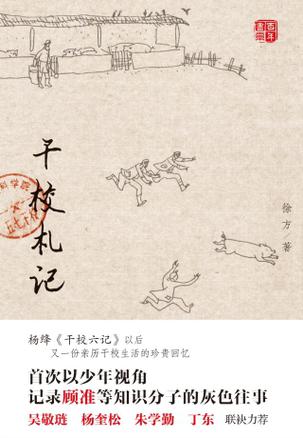 百年書香
干校札记
徐方/著
科学院
五七干
杨绛《干校六记》以后
又一份亲历干校生活的珍贵回忆
首次以少年视角
记录顾准等知识分子的灰色往事
吴敬琏 杨奎松 朱学勤 丁东 联袂力荐